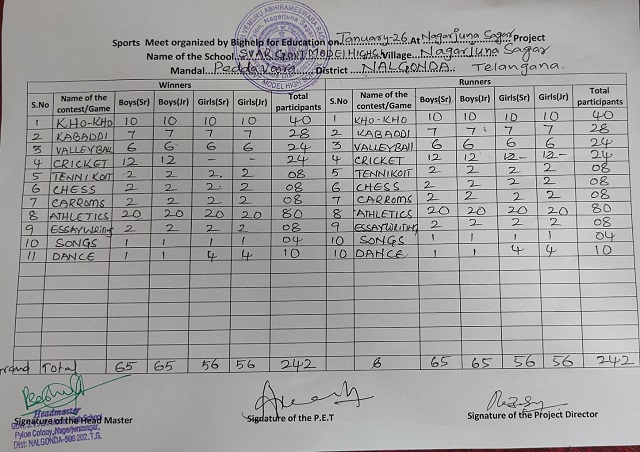 Sports Meet organized by Bighelp for Education on January-26 At Nagarjuna Sagar Project
Name of the School SVAR GOVT MODEL HIGHS Village Nagarjuna Sagar
Mandal Peddavoora District NALGONDA. Telangana.
Winners Runners
S.No Name of the contest/Game Boys(Sr) Boys(Jr) Girls(Sr) Girls(Jr) Total participants S.No Name of the contest/Game Boys(Sr) Boys(Jr) Girls(Sr) Girls(Jr) Total participants
1 KHO-KHO 10 10 10 10 40 1 KHO-KHO 10 10 10 10 40
2 KABADDI 7 7 7 7 28 2 KABADDI 7 7 7 7 28
3 VALLEYBALL 6 6 6 6 24 3 VALLEYBALL 6 6 6 6 24
4 CRICKET 12 12 - - 24 4 CRICKET 12 12 12 12 24
5 TENNIKOIT 2 2 2 2 08 5 TENNIKOIT 2 2 2 2 08
6 CHESS 2 2 2 2 08 6 CHESS 2 2 2 2 08
7 CARROMS 2 2 2 2 08 7 CARROMS 2 2 2 2 08
8 ATHLETICS 20 20 20 20 80 8 ATHLETICS 20 20 20 20 80
9 ESSAYWRITING 2 2 2 2 08 9 ESSAYWRITING 2 2 2 2 08
10 SONGS 1 1 1 1 04 10 SONGS 1 1 1 1 04
11 DANCE 1 1 4 4 10 10 DANCE 1 1 4 4 10
Grand Total 65 65 56 56 242 8 65 65 56 56 242
Headmaster
Signature of the Head Master Signature of the P.E.T Signature of the Project Director
Pylon Colony, Nagarjunasagar,
Dist: NALGONDA-508 202. T.G.